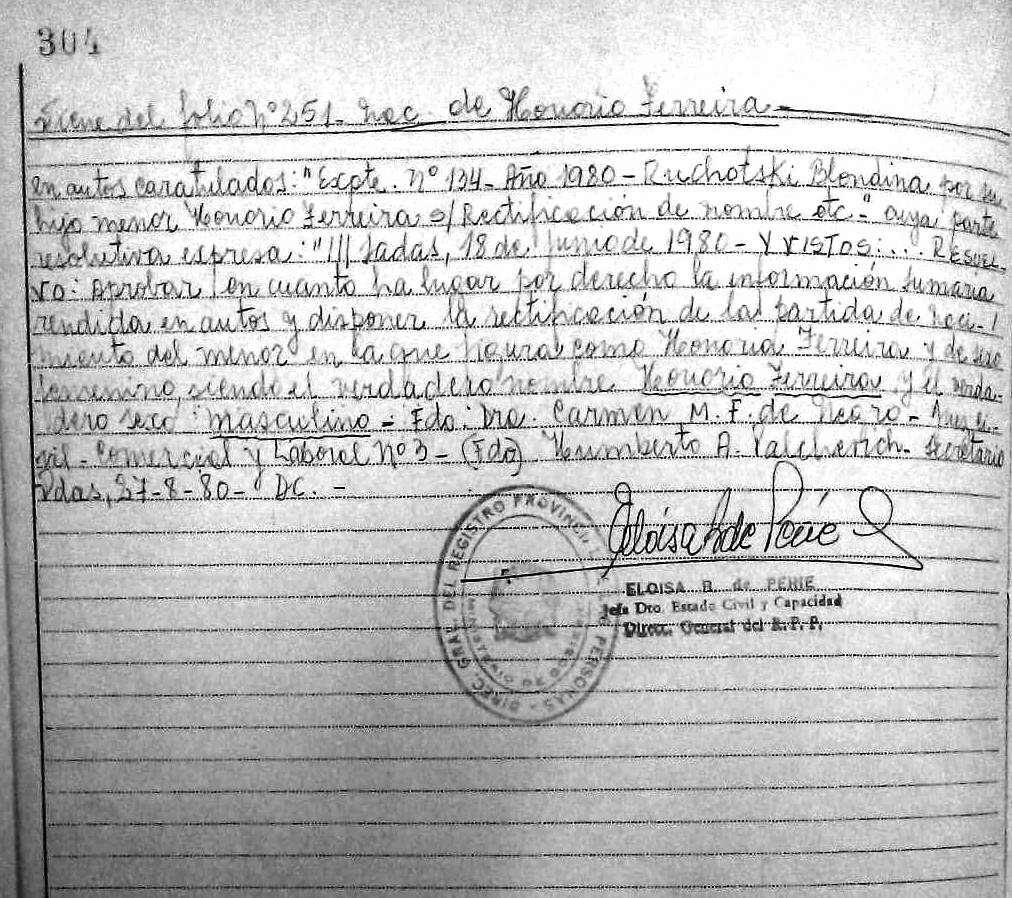 304
Viene del folio Nº 251- Nac. de Honorio Ferreira-
en autos caratulados: "Expte. nº 134- Año 1980- Ruchotski Blondina por su
hijo menor Honorio Ferreira s/Rectificación de nombre etc-" cuya parte
resolutiva expresa: "/// sadas, 18 de junio de 1980- Y VISTOS:... RESUEL-
VO: Aprobar en cuanto ha lugar por derecho la información sumaria
rendida en autos y disponer la rectificación de la partida de naci-
miento del menor en la que figura como Honoria Ferreira y de sexo
femenino, siendo el verdadero nombre Honorio Ferreira y el verda-
dero sexo masculino- Fdo: Dra. Carmen M. F. de Negro- Juez Ci-
vil- Comercial y Laboral Nº 3- (Fdo) Humberto A. Secretario
Pdas, 27-8-80- DC.-
ELOISA B. de PERIE
Jefa Dto. Estado Civil y Capacidad
Direcc. General del R. P. P.
DIREC. GRAL. DEL REGISTRO PROVINCIAL PERSONAS